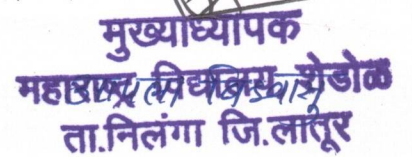 मुख्याध्यापक
महाराष्ट्र विद्यालय शेडोळ
ता.निलंगा जि.लातूर